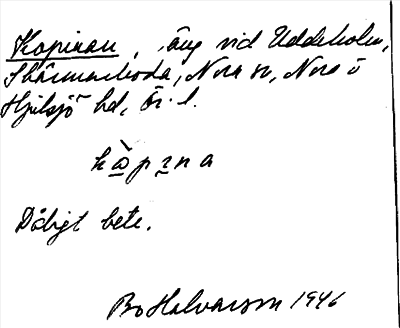 Kopinau, äng vid Uddeholm,
Skärmarboda, Nora sn, Nora o
Hjulsjö hd, Ör. l.
kåpɪna
Dåligt bete.
Bo Halvarson 1946